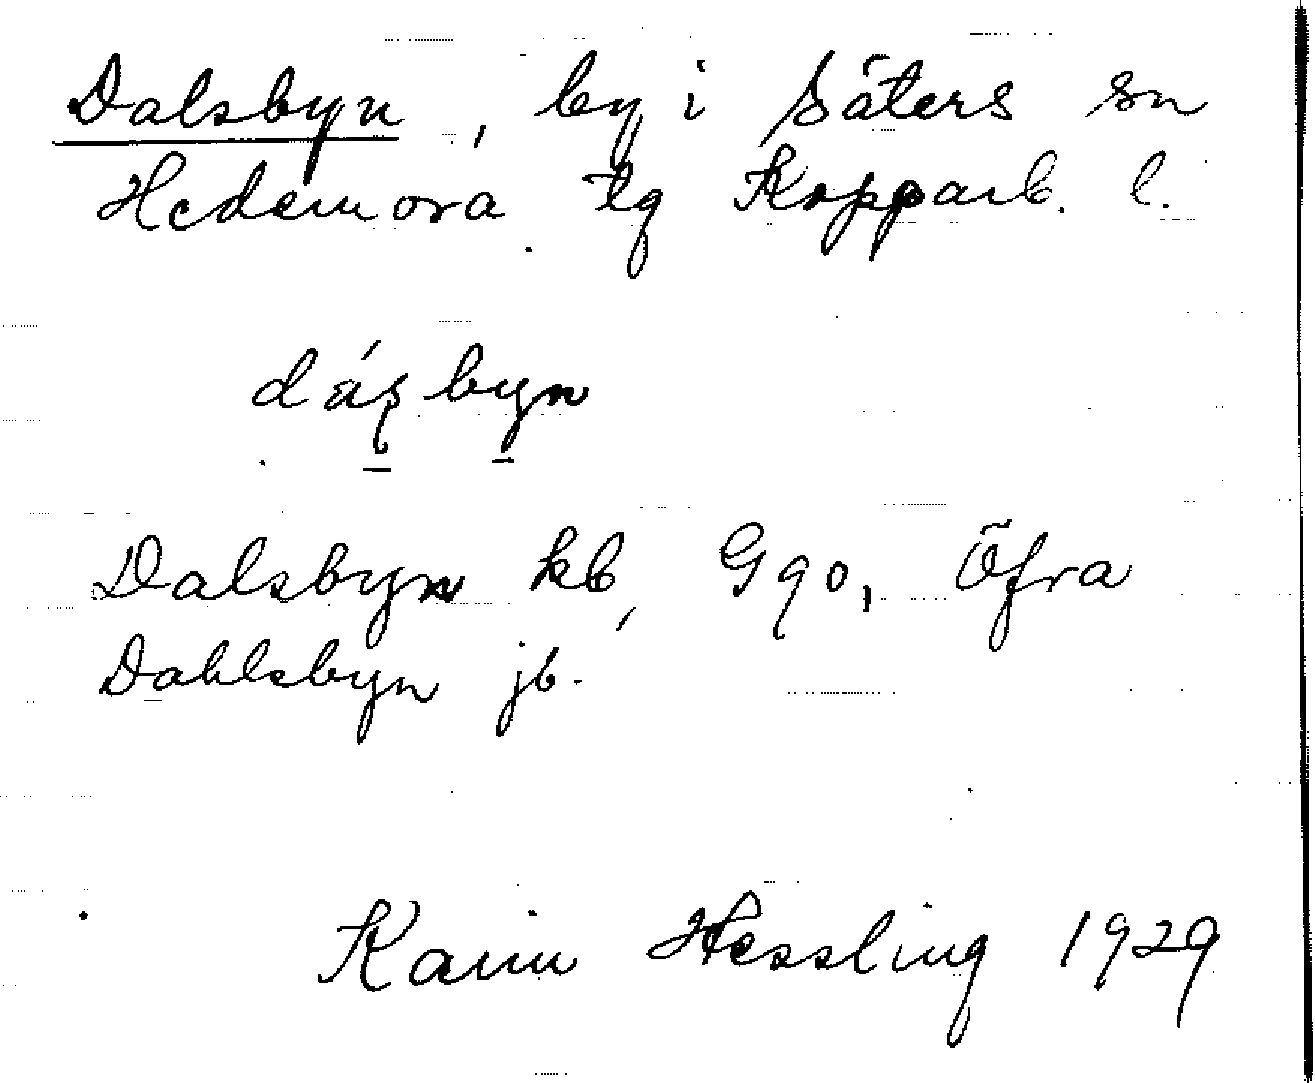 Dalsbyn, by i Säters sn
Hedemora tg Kopparb. l.
dáʂbyn
Dalsbyn kb, Gqo, Öfra
Dahlsbyn jb.
Karin Hessling 1929